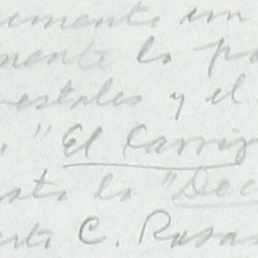 emente un
mente la pa
estales y el
" El Carriz
sta la "Dec
erto C. Rosas